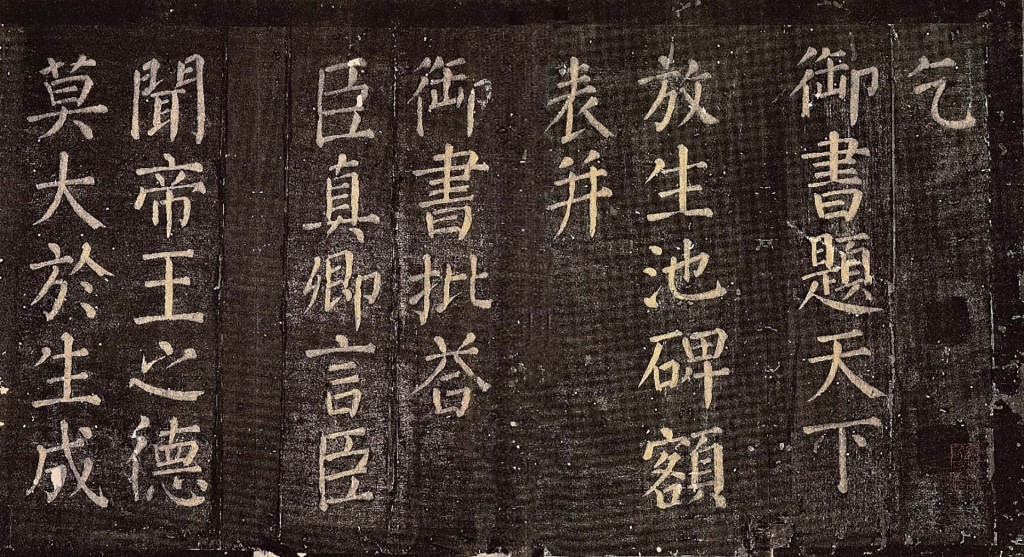 乞
御書題天下
放生池碑額
表并
御書批荅
臣真卿言臣
聞帝王之德
莫大於生成